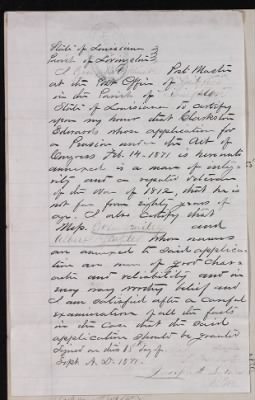 State of Louisiana
Parish of Livingston
I Post Master
at the Post Office of
in the Parish of
State of Louisiana do certify
upon my honor that Clarkston
Edwards whose application for
a Pension under the Act of
Congress Feb. 14 - 1871 is herewith
annexed is a man of
and a reputed veteran
of the War of 1812, that he is
not far from eighty years of
age. I also certify that
Mess. and
whose names
are annexed to said applica-
tion are men of good char-
acter and reliability and in
every way worthy belief and
I am satisfied after a careful
examination of all the facts
in the case that the said
application should be granted
Signed on this 15 day of
Sept A. D. 1871.